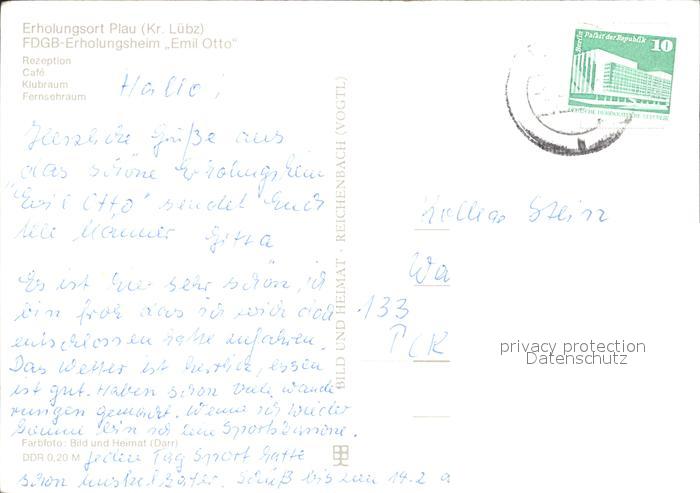 Erholungsort Plau (Kr. Lübz)
FDGB-Erholungsheim „Emil Otto“
Rezeption
Café
Klubraum
Fernsehraum
Hallo!
Herzliche Grüße aus
das schöne Erholungsheim
"Emil Otto" sendet Euch
Gitta
Es ist hier sehr schön, ich
bin froh das ich mich doch
entschlossen hatte zufahren.
Das Wetter ist herrlich, essen
ist gut. Haben schon viele Wande
rungen gemacht. Wenn ich wieder
komme bin ich eine Sportskanone.
Jeden Tag Sport hatte
schon Muskelkater. bis zum 14.2
Farbfoto: Bild und Heimat (Darr)
DDR 0,20 M
BILD UND HEIMAT · REICHENBACH (VOGTL)
Berlin Palast der Republik
10
DEUTSCHE DEMOKRATISCHE REPUBLIK
Stein
Wa
133
privacy protection
Datenschutz